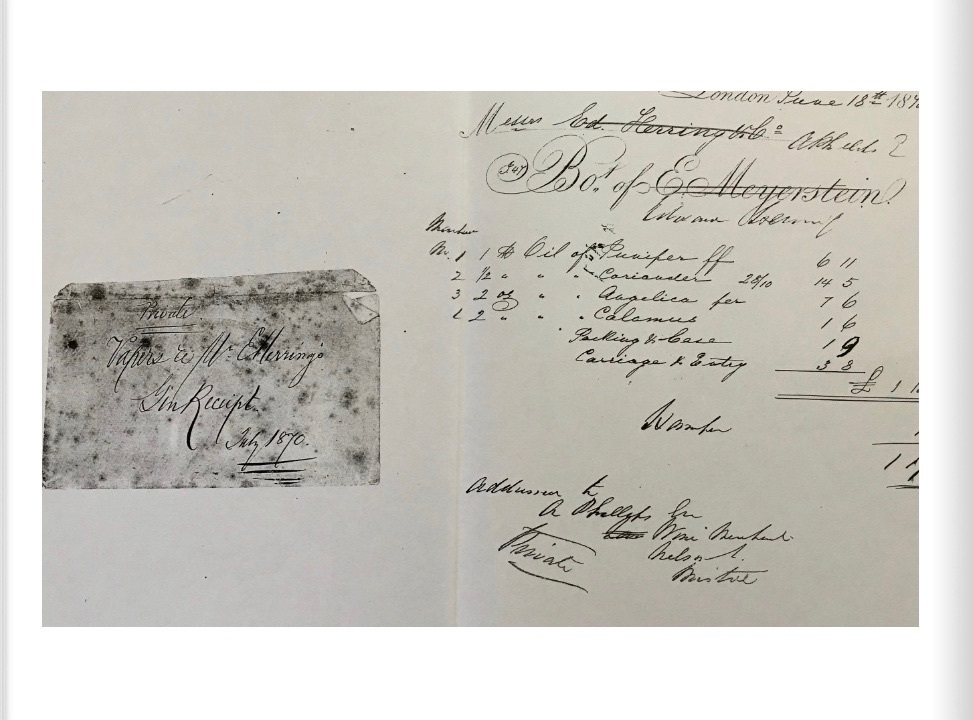 Private
Papers re Mr. E Herring's
Gin Receipt.
July 1870.
London June 18th 187
Messrs Ed. Herring & Co
Bot. of E. Meyerstein
Number
No. 1 1 lb Oil of Juniper ff 6 11
2 ½ " " " Coriander 28/10 14 5
3 2 oz " " Angelica fer 7 6
2 " " " Calamus 1 6
Packing & Case 1 9
Carriage & Entry 3 3
£ 1 1
Number
1 1
Addressed to
A Phillips
Wine Merchant
Nelson St.
Bristol
Private